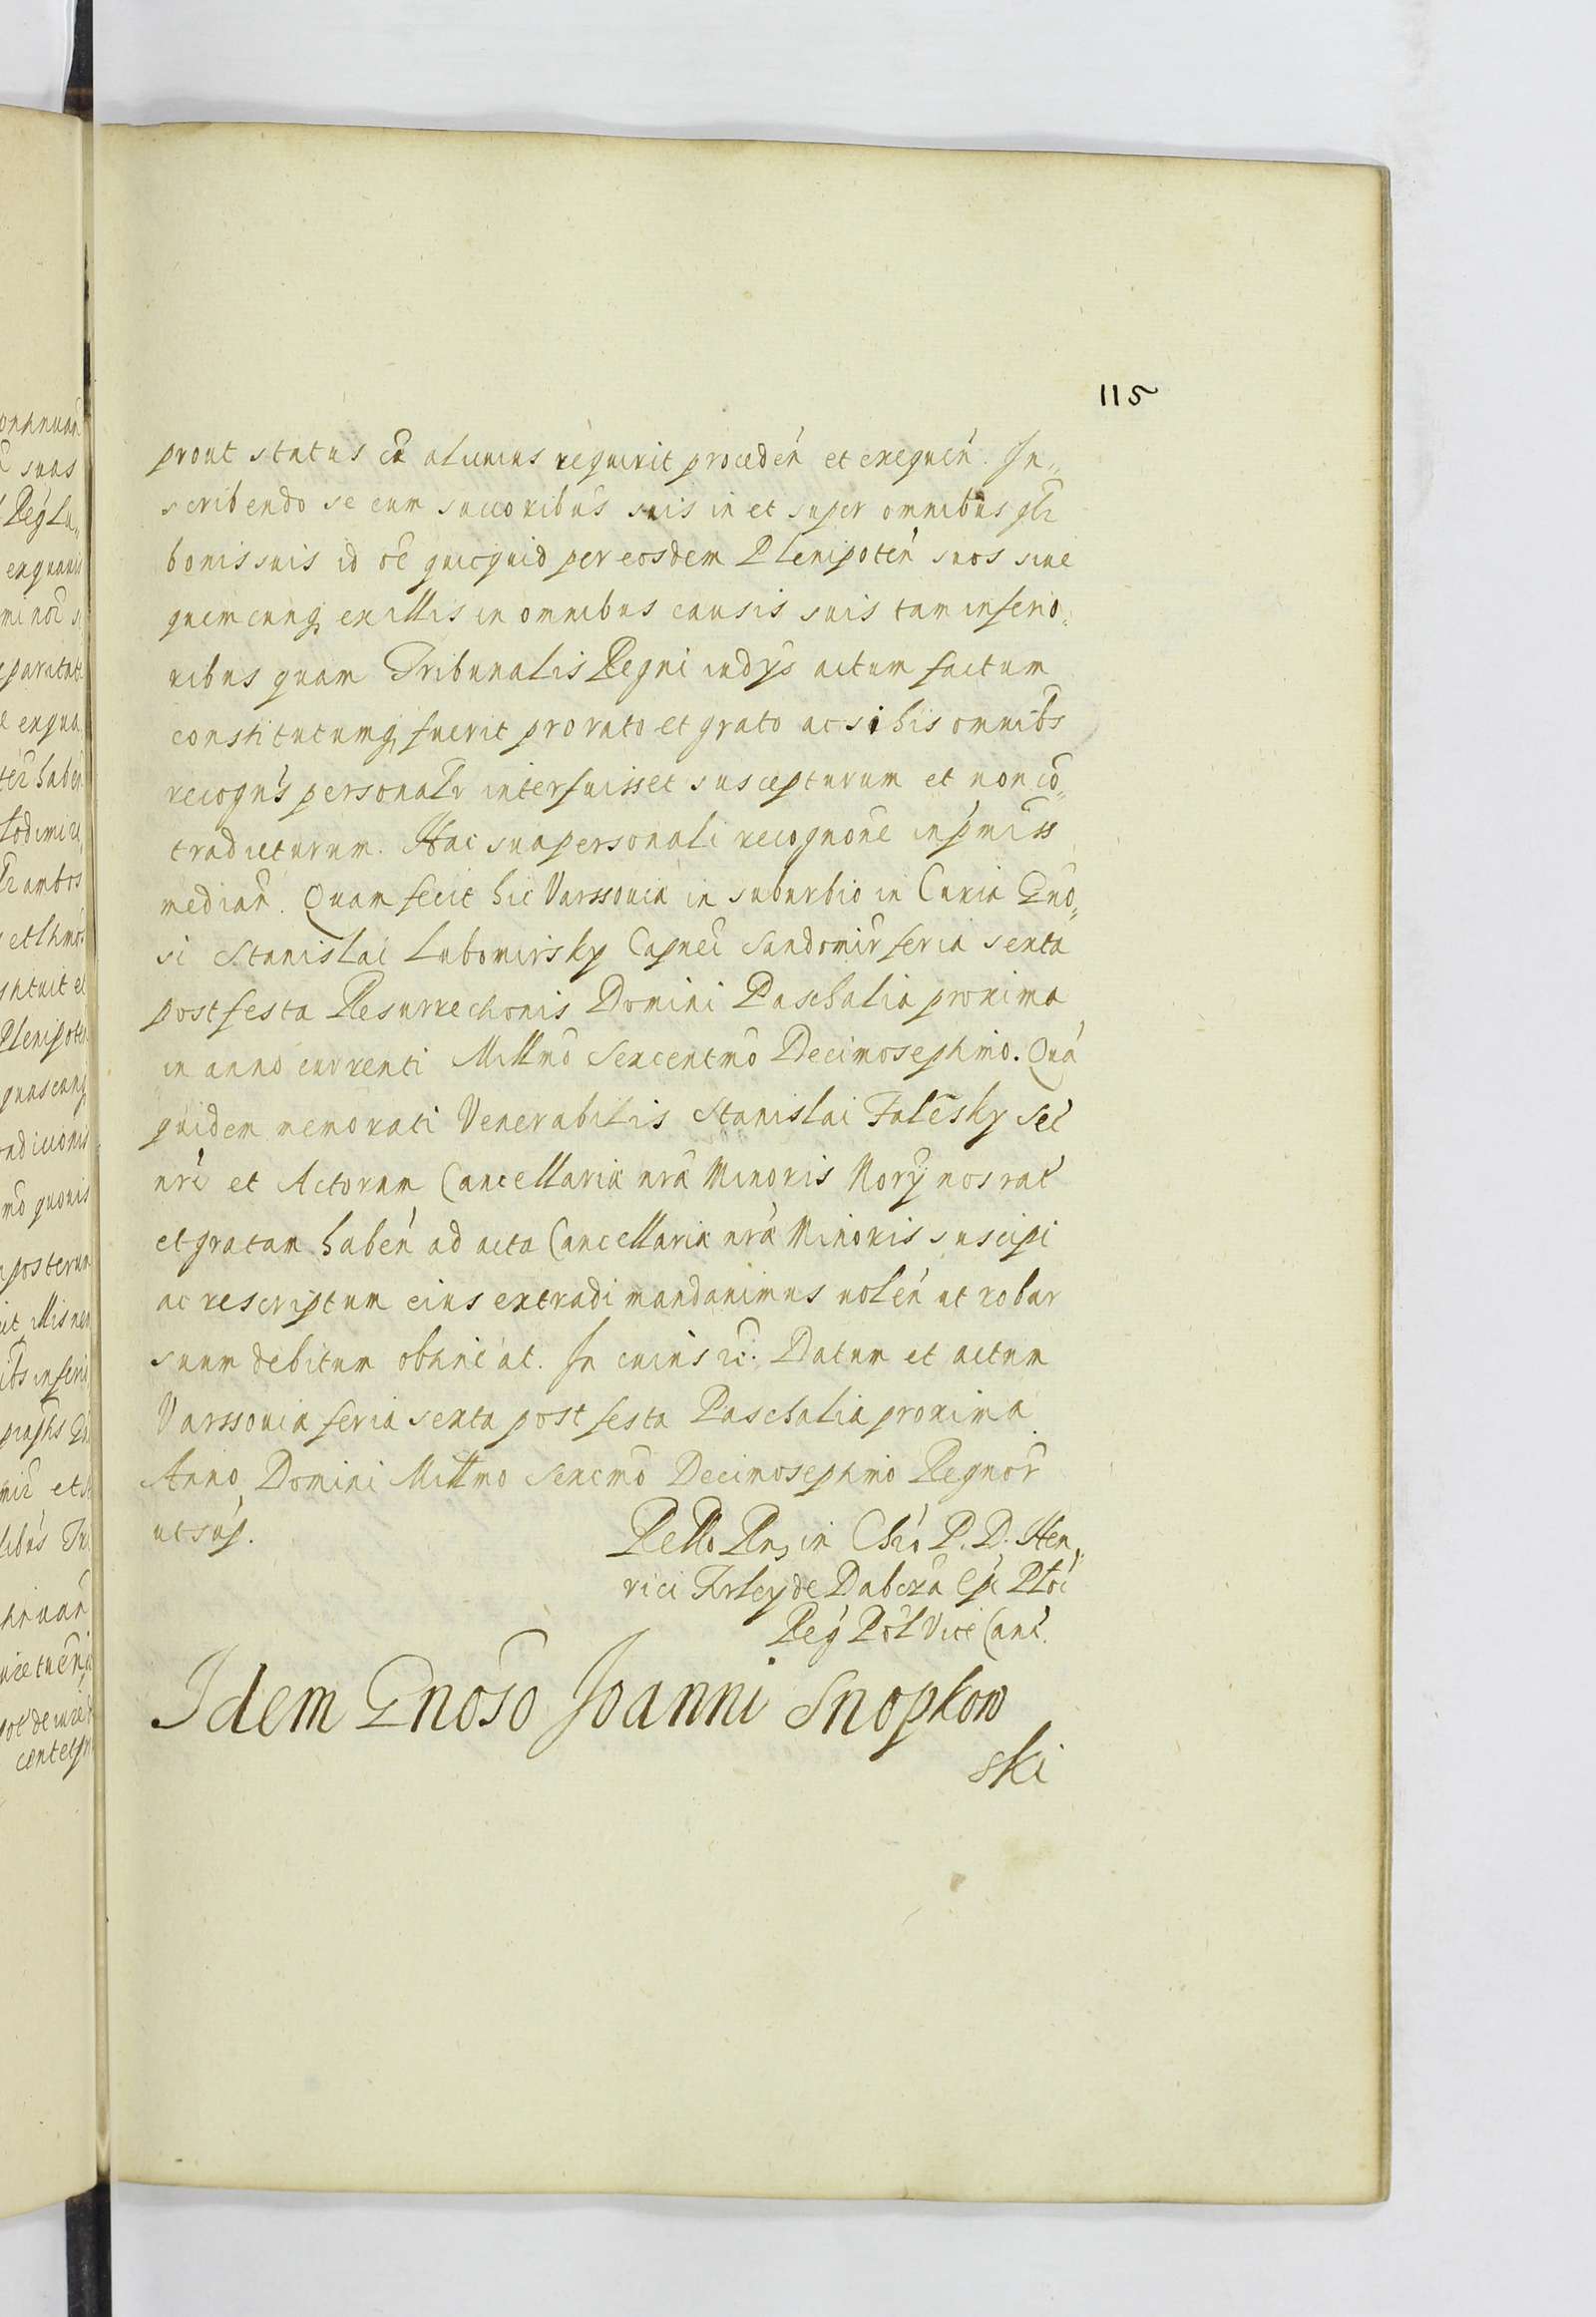 115
prout status cæ alicuius requirit procedeń et exequeń. In„
scribendo se cum succoribus suis in et super omnibus glr
bonis suis id oē quicquid per eosdem Plenipoteń suos siue
quemcunq ex illis in omnibus causis suis tam inferio„
ribus quam Tribunalis Regni iudys actum factum
constitutumq fuerit pro rato et grato ac si his omnibs
recogńs personalr interfuisset suscepturum et non cō„
tradicturum. Hac sua personali recognone in pmiss
median. Quam fecit hic Varssouiæ in suburbio in Curia Gno„
si Stanislai Lubomirsky Capnei Sandomir feria sexta
post festa Resurrectionis Domini Paschalia proxima
in anno currenti Millmo Sexcentmo Decimoseptimo. Quá
quidem memorati Venerabilis Stanislai Falēsky Sec
nri et Actorum Cancellariæ nræ Minoris Nory nos rat
et gratam habeń ad acta Cancellariæ nræ Minoris suscipi
ac rescriptum eius extradi mandauimus uoleń ut robur
suum debitum obtineat. In cuius rei. Datum et actum
Varssouiæ feria sexta post festa Paschalia proxima
Anno Domini Millmo Sexcmo Decimoseptimo Regnor
ut sup.
Rello Rn, in Chro P. D. Hen„
rici Firley de Dabrouicza Epi Ploc
Reg Pol Vice Canc.
Idem Gnoso Joanni Snopkow
ski